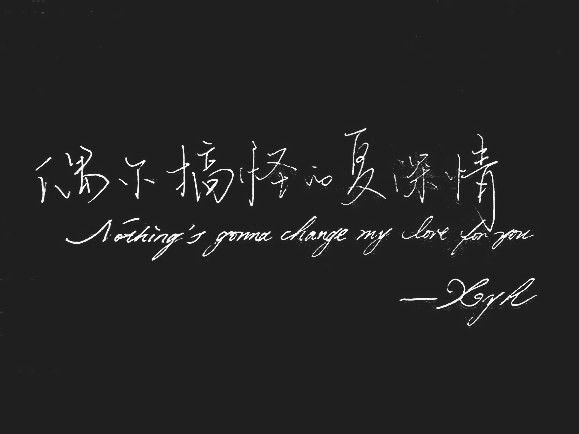 偶尔搞怪的夏深情
Nothing's gonna change my love for you